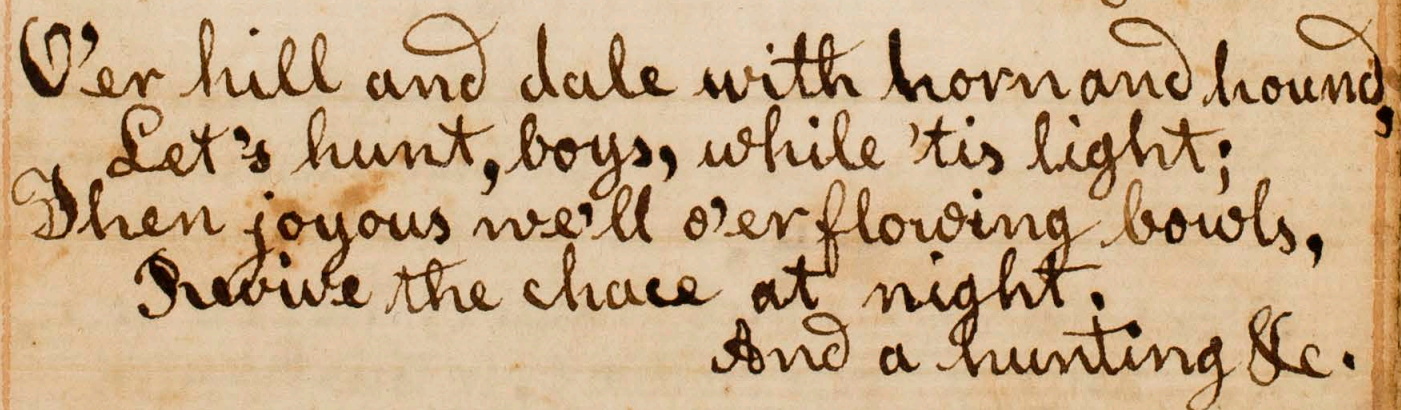 O'er hill and dale with horn and hound,
Let's hunt, boys, while 'tis light;
Then joyous we'll o'erflowing bowls,
Revive the chace at night.
And a hunting &c.